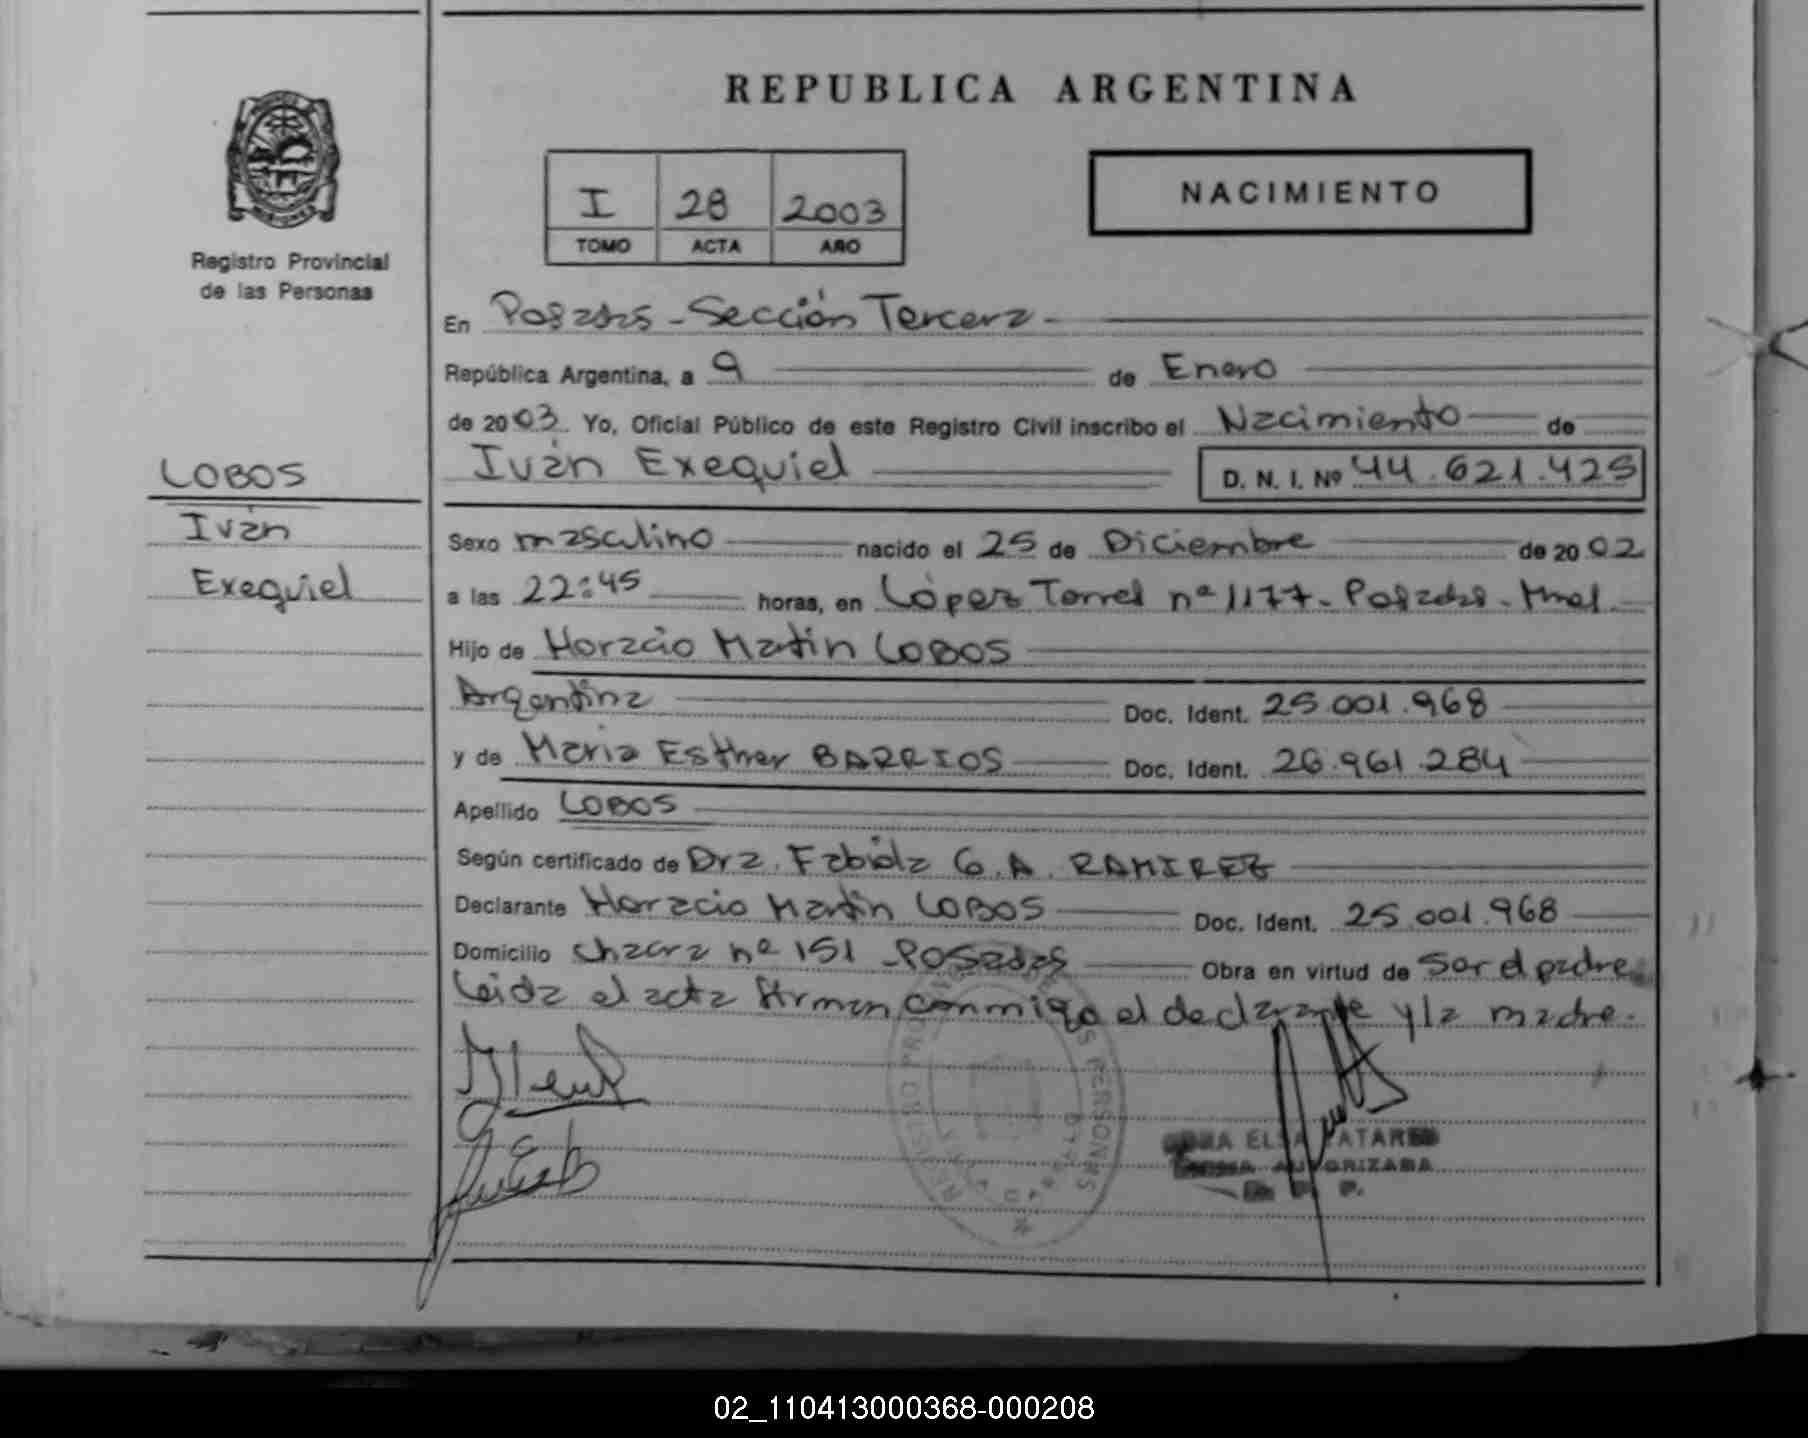 REPUBLICA ARGENTINA
I 28 2003
TOMO ACTA AÑO
NACIMIENTO
Registro Provincial
de las Personas
En Posadas - Sección Tercera
República Argentina, a 9 de Enero
de 2003. Yo, Oficial Público de este Registro Civil inscribo el Nacimiento de
Iván Exequiel D. N. I. Nº 44.621.425
LOBOS
Iván
Exequiel
Sexo masculino nacido el 25 de Diciembre de 20 02
a las 22:45 horas, en López Torres nº 1177 - Posadas - Mnes
Hijo de Horacio Martin LOBOS
Argentina Doc. Ident. 25.001.968
y de Maria Esther BARRIOS Doc. Ident. 26.961.284
Apellido LOBOS
Según certificado de Dra. Fabiola G. A. RAMIREZ
Declarante Horacio Martin LOBOS Doc. Ident. 25.001.968
Domicilio Chacra nº 151 Posadas Obra en virtud de ser el padre
Leida el acta firman conmigo el declarante y la madre.
REGISTRO DE LAS PERSONAS
ELSA
FIRMA AUTORIZADA
R. P. P.
02_110413000368-000208